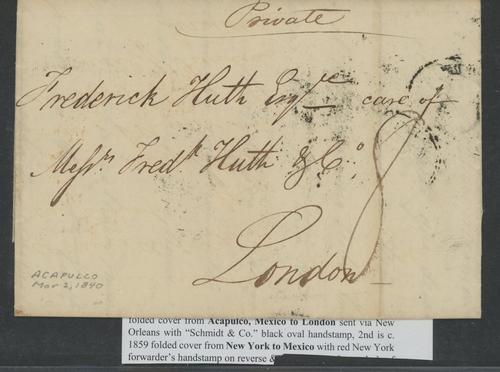 Private
Frederick Huth Esqre care of
Messrs. Fredk. Huth & Co.
London
ACAPULCO
Mar 2, 1840
folded cover from Acapulco, Mexico to London sent via New
Orleans with "Schmidt & Co." black oval handstamp, 2nd is c.
1859 folded cover from New York to Mexico with red New York
forwarder's handstamp on reverse &